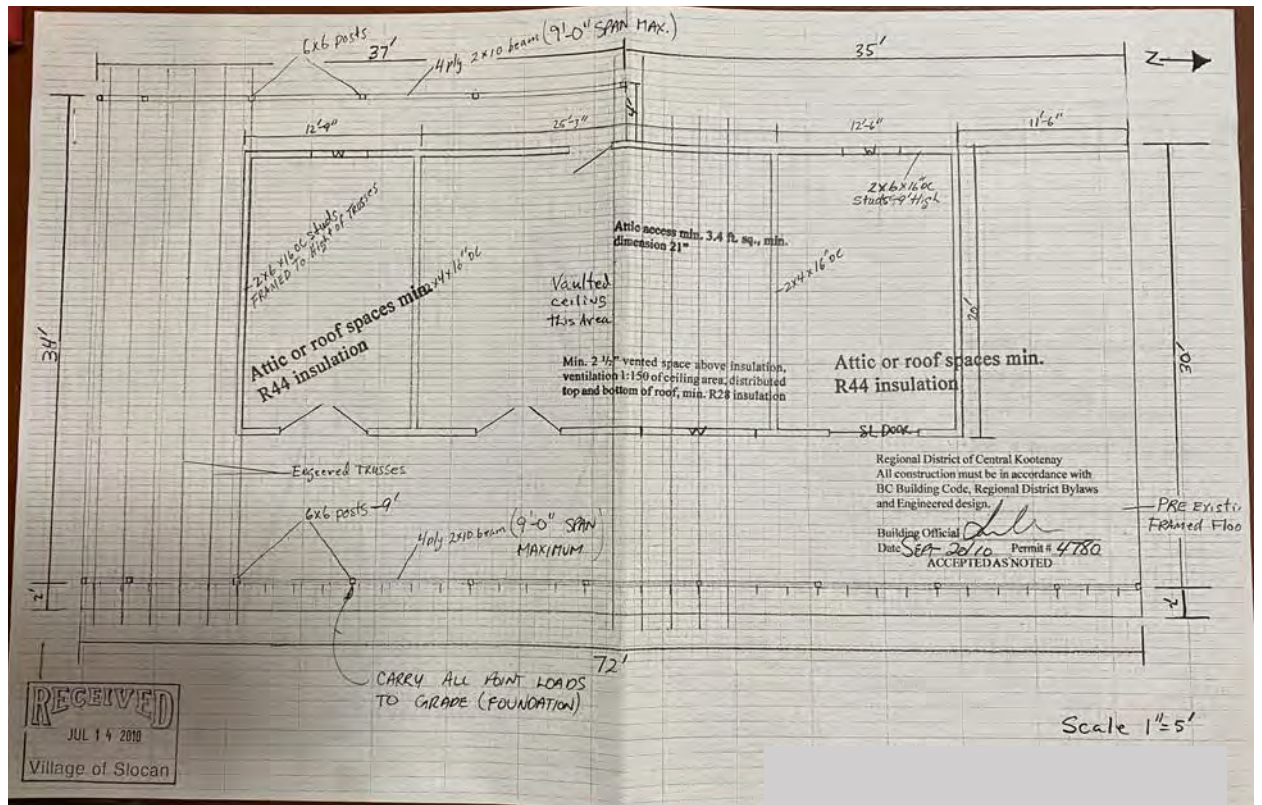 6x6 posts
37'
4 ply 2x10 beam (9'-0" SPAN MAX.)
35'
Z
4'
12'-9"
25'-3"
12'-6"
11'-6"
W
W
2x6x16"OC
Studs-9' High
2x6x16"OC Studs
FRAMED TO Hight of TRUSSES
2x4x16"OC
Attic access min. 3.4 ft. sq., min.
dimension 21"
2x4x16"OC
Vaulted
ceiling
this Area
34'
20'
30'
Attic or roof spaces min.
R44 insulation
Min. 2 ½" vented space above insulation,
ventilation 1:150 of ceiling area, distributed
top and bottom of roof, min. R28 insulation
Attic or roof spaces min.
R44 insulation
W
SL Door
Engeered TRUSSES
Regional District of Central Kootenay
All construction must be in accordance with
BC Building Code, Regional District Bylaws
and Engineered design.
Building Official
Date SEP 20/10 Permit # 4780
ACCEPTED AS NOTED
PRE Existi
FRAMED Floo
6x6 posts-9'
4ply 2x10 beam (9'-0" SPAN
MAXIMUM)
2'
2'
72'
CARRY ALL POINT LOADS
TO GRADE (FOUNDATION)
RECEIVED
JUL 14 2010
Village of Slocan
Scale 1"=5'